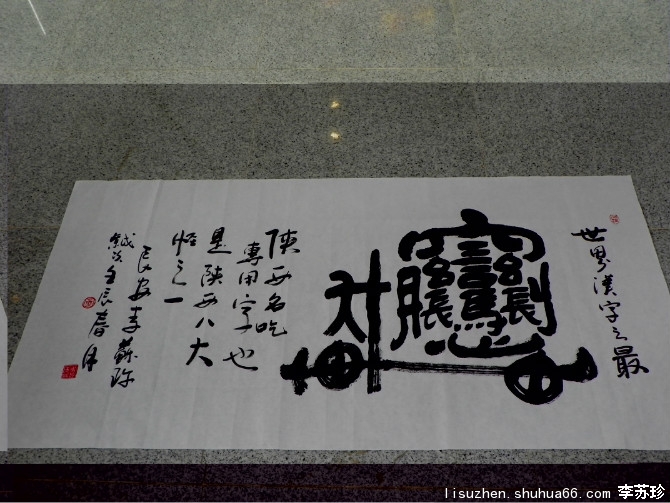 世界漢字之最
𰻝
陕西名吃
專用字也
是陕西八大
怪之一
長安李蘇珍
壬辰春月
lisuzhen.shuhua66.com 李苏珍